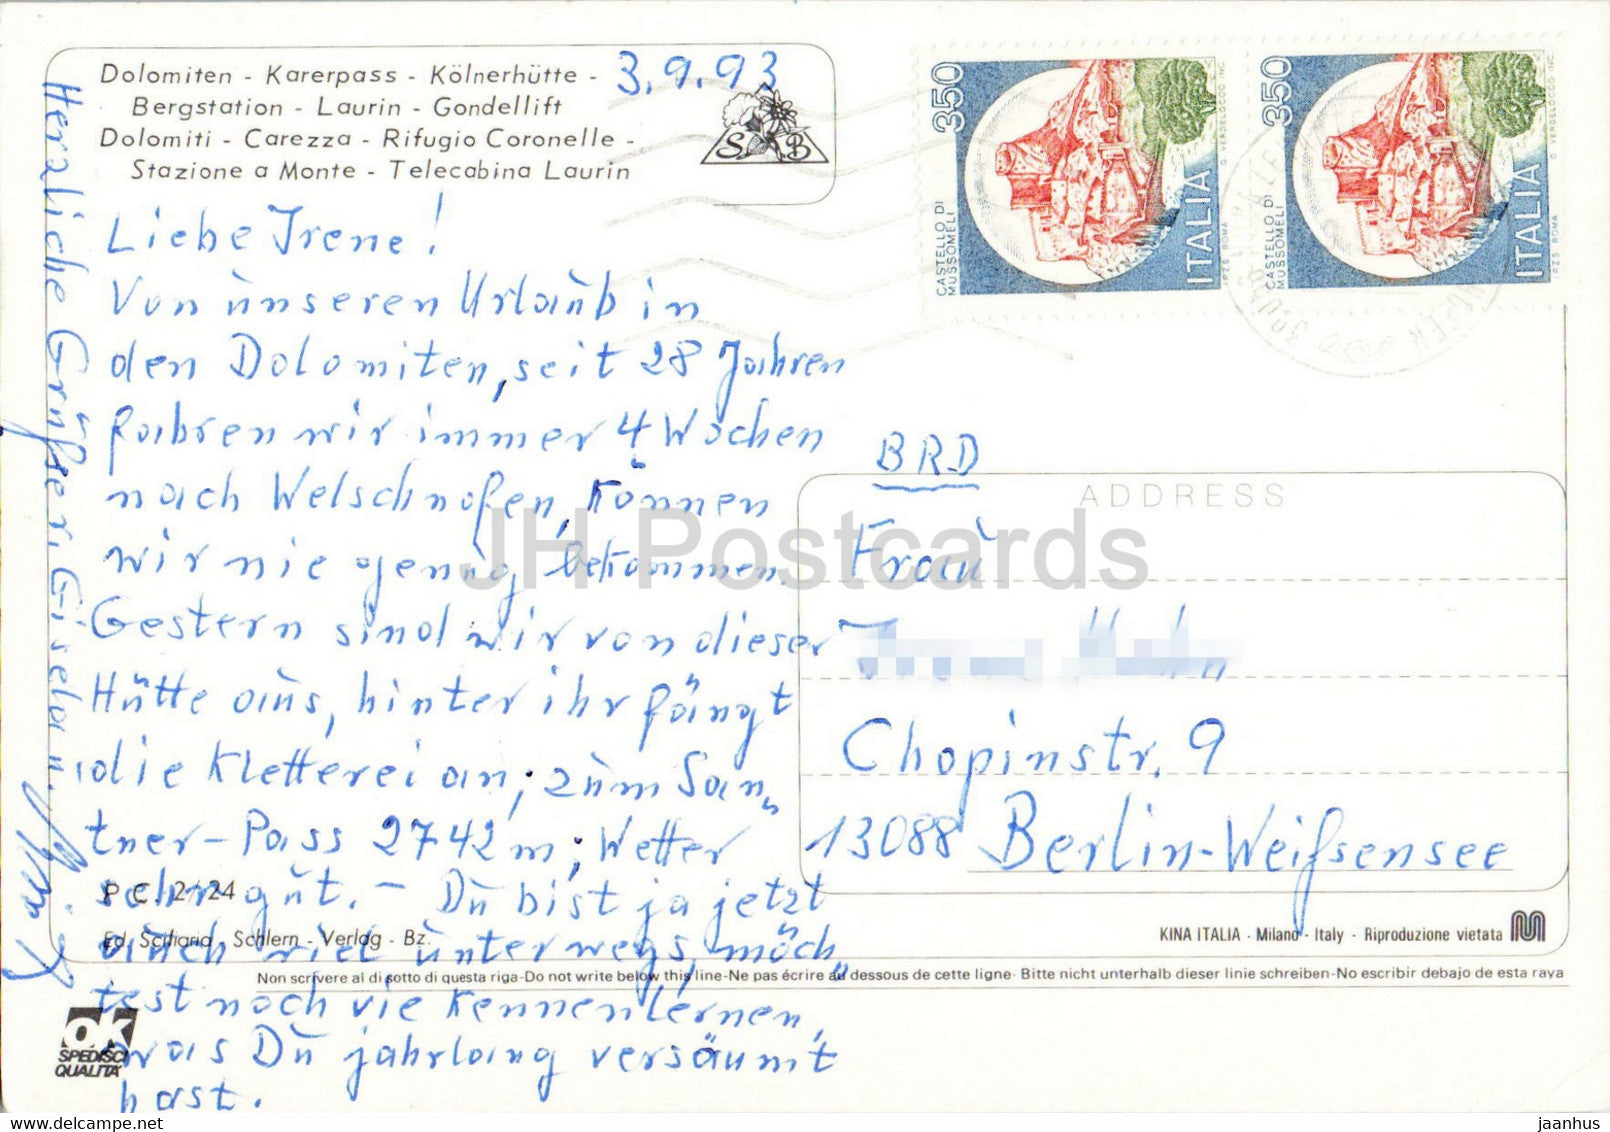 Dolomiten - Karerpass - Kölnerhütte -
Bergstation - Laurin - Gondellift
Dolomiti - Carezza - Rifugio Coronelle -
Stazione a Monte - Telecabina Laurin
3.9.93
S B
Liebe Irene!
Von unseren Urlaub in
den Dolomiten, seit 28 Jahren
fahren wir immer 4 Wochen
nach Welschnofen, können
wir nie genug bekommen.
Gestern sind wir von dieser
Hütte aus, hinter ihr fängt
die Kletterei an, zum San„
tner-Pass 2742 m, Wetter
sehr gut. - Du bist ja jetzt
auch viel unterwegs, möch„
test noch vie kennenlernen,
was Du jahrlang versäumt
hast.
Herzliche Grüße v. Gisela u.
350
CASTELLO DI
MUSSOMELI
ITALIA
I.P.Z.S. ROMA
G. VERDELOCCO INC.
350
CASTELLO DI
MUSSOMELI
ITALIA
I.P.Z.S. ROMA
G. VERDELOCCO INC.
BRD
ADDRESS
Frau
Chopinstr. 9
13088 Berlin-Weißensee
P C 2 24
Ed. Sciliaria Schlern - Verlag - Bz.
KINA ITALIA - Milano - Italy - Riproduzione vietata
Non scrivere al di sotto di questa riga-Do not write below this line-Ne pas écrire au dessous de cette ligne- Bitte nicht unterhalb dieser linie schreiben-No escribir debajo de esta raya
ok
SPEDISCI
QUALITÀ
JH Postcards
jaanhus